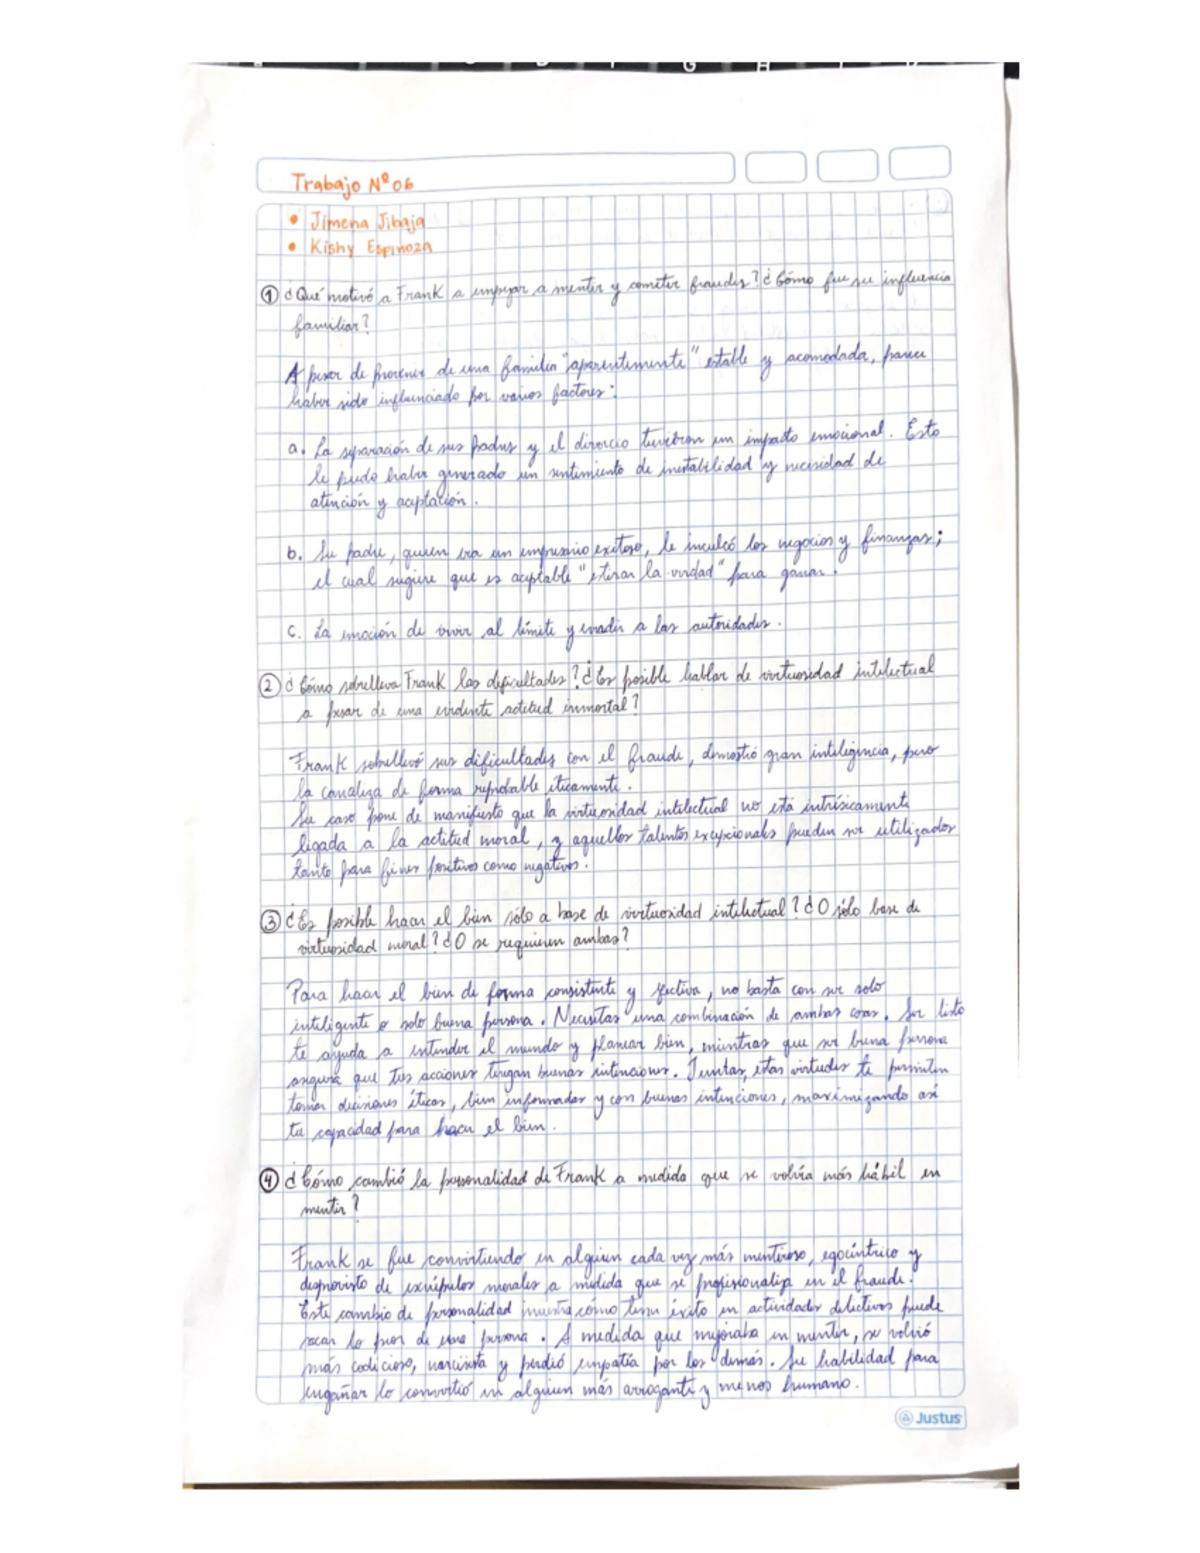 Trabajo Nº 06
• Jimena Jibaja
• Kishy Espinoza
① ¿Qué motivó a Frank a empezar a mentir y cometer fraudes? ¿Cómo fue su influencia
familiar?
A pesar de provenir de una familia "aparentemente" estable y acomodada, parece
haber sido influenciado por varios factores:
a. La separación de sus padres y el divorcio tuvieron un impacto emocional. Esto
le pudo haber generado un sentimiento de inestabilidad y necesidad de
atención y aceptación.
b. Su padre, quien era un empresario exitoso, le inculcó los negocios y finanzas;
el cual sugiere que es aceptable "estirar la verdad" para ganar.
c. La emoción de vivir al límite y evadir a las autoridades.
② ¿Cómo sobrelleva Frank las dificultades? ¿Es posible hablar de virtuosidad intelectual
a pesar de una evidente actitud inmortal?
Frank sobrellevó sus dificultades con el fraude, demostró gran inteligencia, pero
la canaliza de forma reprobable éticamente.
Su caso pone de manifiesto que la virtuosidad intelectual no está intrísicamente
ligada a la actitud moral, y aquellos talentos excepcionales pueden ser utilizados
tanto para fines positivos como negativos.
③ ¿Es posible hacer el bien sólo a base de virtuosidad intelectual? ¿O sólo base de
virtuosidad moral? ¿O se requieren ambas?
Para hacer el bien de forma consistente y efectiva, no basta con ser solo
inteligente o solo buena persona. Necesitas una combinación de ambas cosas. Ser listo
te ayuda a entender el mundo y planear bien, mientras que ser buena persona
asegura que tus acciones tengan buenas intenciones. Juntas, estas virtudes te permiten
tomar decisiones éticas, bien informadas y con buenas intenciones, maximizando así
tu capacidad para hacer el bien.
④ ¿Cómo cambió la personalidad de Frank a medida que se volvía más hábil en
mentir?
Frank se fue convirtiendo en alguien cada vez más mentiroso, egocéntrico y
desprovisto de escrúpulos morales a medida que se profesionaliza en el fraude.
Este cambio de personalidad muestra cómo tener éxito en actividades delictivas puede
sacar lo peor de una persona. A medida que mejoraba en mentir, se volvió
más codicioso, narcisista y perdió empatía por los demás. Su habilidad para
engañar lo convirtió en alguien más arrogante y menos humano.
Justus